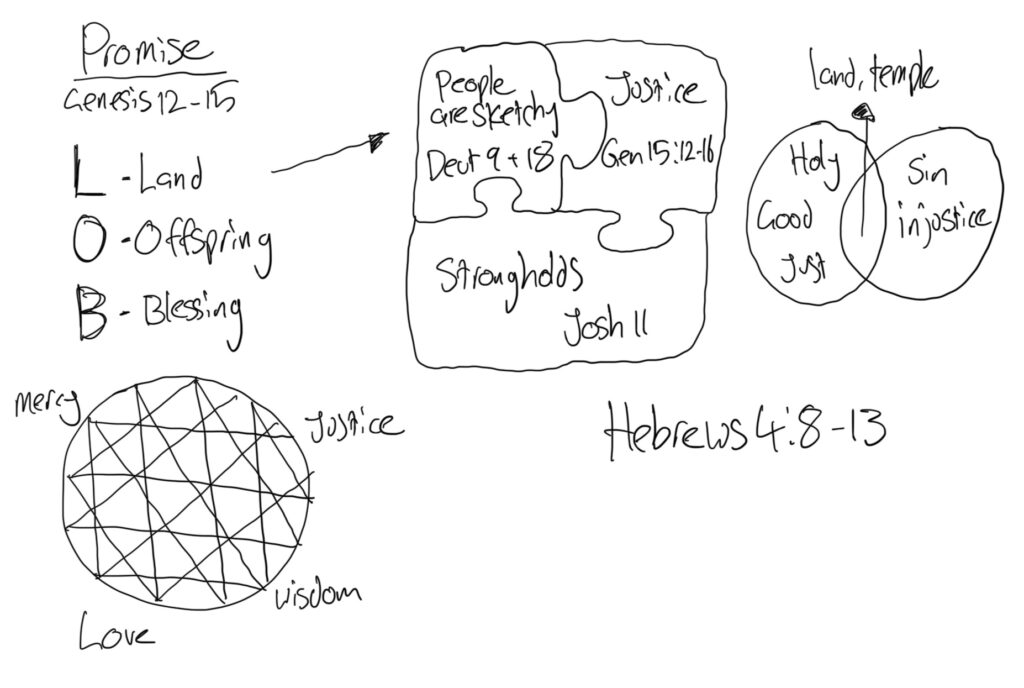 Promise
Genesis 12-15
L - Land
O - Offspring
B - Blessing
People
are sketchy
Deut 9 + 18
Justice
Gen 15:12-16
Strongholds
Josh 11
land, temple
Holy
Good
Just
Sin
injustice
mercy
Justice
wisdom
Love
Hebrews 4:8-13